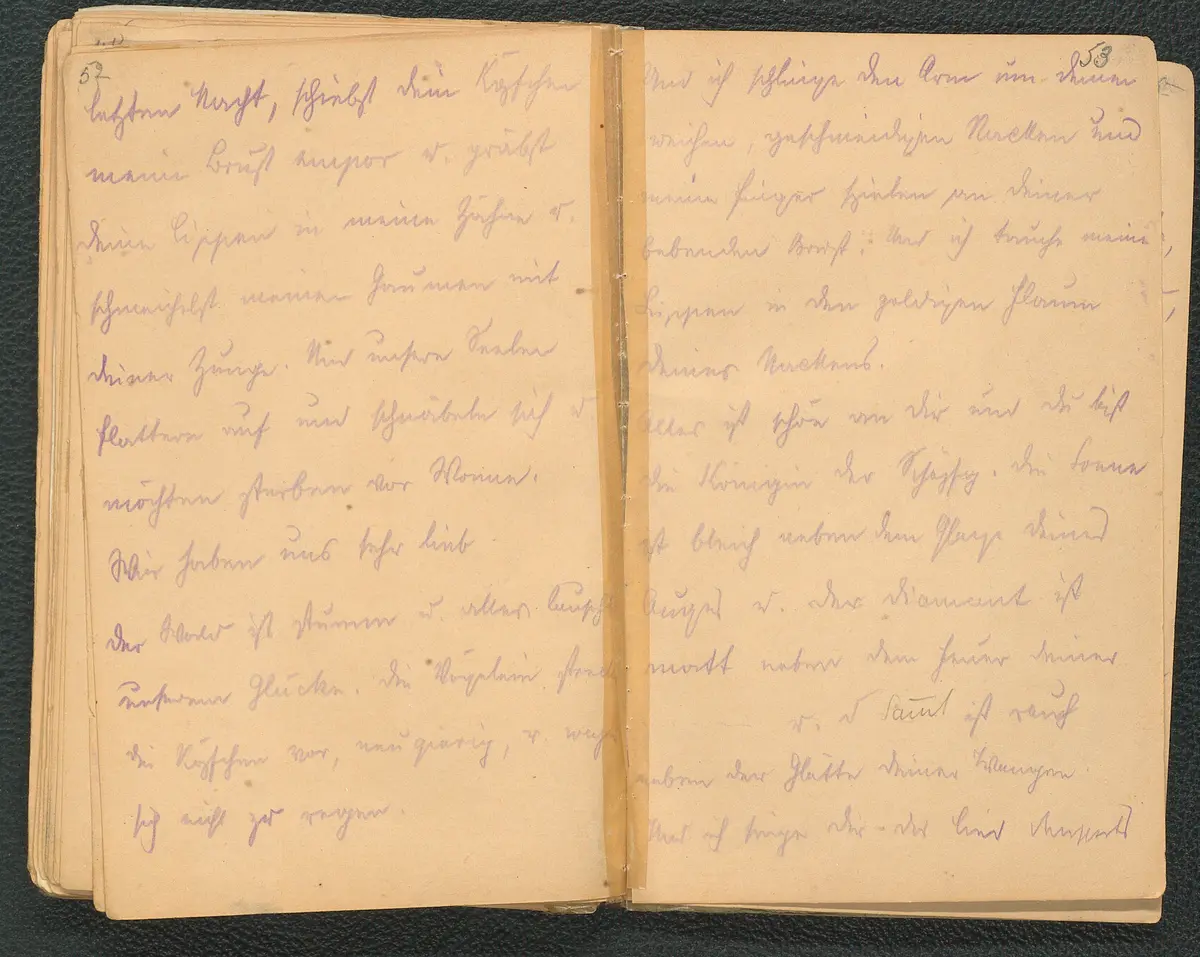 52
letzten Nacht, schiebst dein Köpfchen
meine Brust empor u. gräbst
deine Lippen in meine Zähne u.
schmeichelst meinen Gaumen mit
deiner Zunge. Und unsere Seelen
flattern auf und schnäbeln sich u
möchten sterben vor Wonne.
Wir haben uns sehr lieb
der Wald ist stumm u. alles lauscht
unserem Glücke. die Vögelein streck
die Köpfchen vor, neugierig, u. wag
sich nicht zu regen.
53
Und ich schlinge den Arm um deinen
weichen, geschmeidigen Nacken und
meine Finger spielen an deiner
bebenden Brust. Und ich tauche meine
Lippen in den goldigen Flaum
deines Nackens.
Alles ist schön an dir und du bist
die Königin der Schöpfg. die Sonne
ist bleich neben dem Glanze deines
Auges u. der Diamant ist
matt neben dem Feuer deiner
u. d Samt ist rauh
neben der Glätte deiner Wangen.
Und ich singe dir das Lied